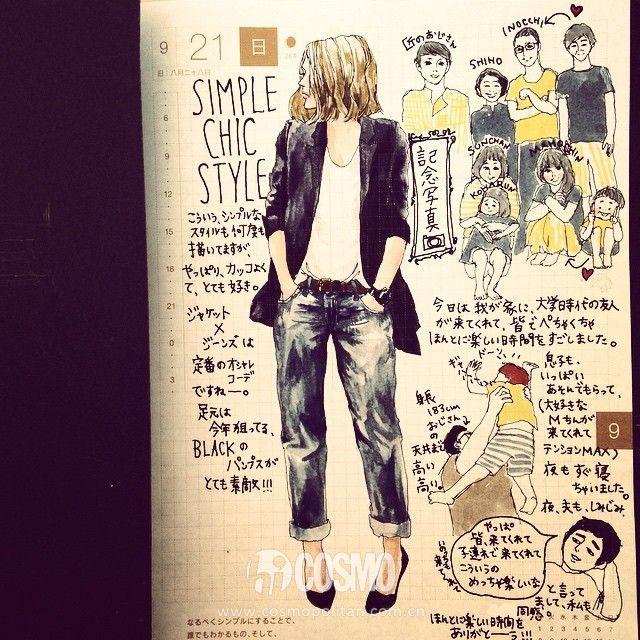 9
21
日
旧:八月二十八日
6
9
12
15
18
21
0
3
SIMPLE
CHIC
STYLE
こういう、シンプルな
スタイルも何度も
描いてますが、
やっぱり、カッコよく
て、とても好き。
ジャケット
×
ジーンズは
定番のオシャレ
コーデ
ですねー。
足元は
今年狙ってる、
BLACKの
パンプスが
とても素敵!!!
なるべくシンプルにすることで、
誰でもわかるもの、そして、
匠のおじさん
SHINO
INOCCHI
SUNCHAN
KOHARUN
記念写真
今日は我が家に、大学時代の友人
が来てくれて、皆でぺちゃくちゃ
ほんとに楽しい時間をすごしました。
ドーン、
身長
183cm
おじさん
の
天井まで
高い
高い。
息子も、
いっぱい
あそんでもらって、
(大好きな
Mちんが
来てくれて
テンションMAX)
夜もすぐ寝
ちゃいました。
夜、夫も、しみじみ、
9
やっぱ
皆、来てくれて
子連れで来てくれて
こういうの
めっちゃ楽しいな
と言って
まして、私も
同感。
ほんとに楽しい時間を
ありがとー!!!
COSMO
www.cosmopolitan.com.cn